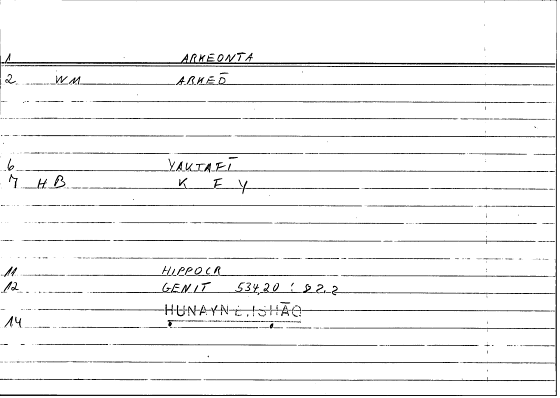 1 ARKEONTA
2 WM ARKEŌ
6 YAKTAFĪ
7 HB K F Y
11 HIPPOCR
12 GENIT 534,20 : 82.2
14 HUNAYN B. ISHĀQ